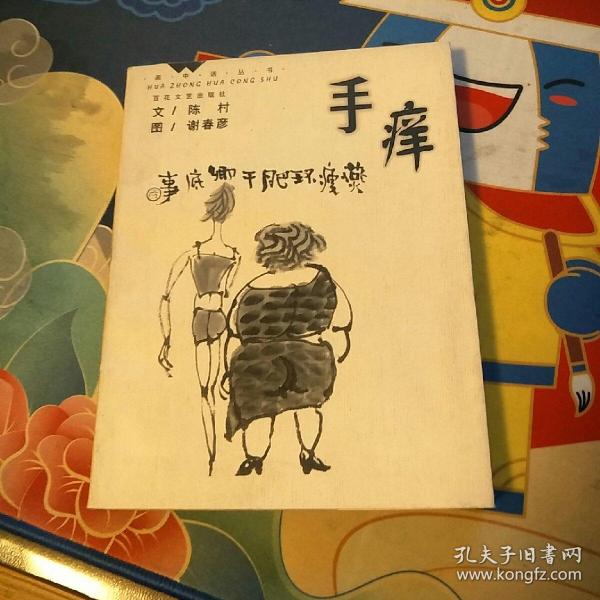 画·中·话·丛·书
HUA ZHONG HUA CONG SHU
百花文艺出版社
文/陈 村
图/谢春彦
手痒
燕瘦环肥干卿底事
孔夫子旧书网
www.kongfz.com